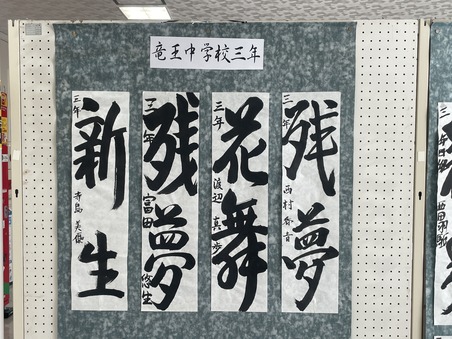 竜王中学校三年
残夢
三年 西村香音
花舞
三年 渡辺真歩
残夢
三年 富田悠生
新生
三年 寺島英俊